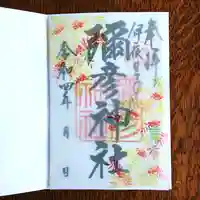 奉拝
伊夜日子
彌彦神社
令和四年 月 日